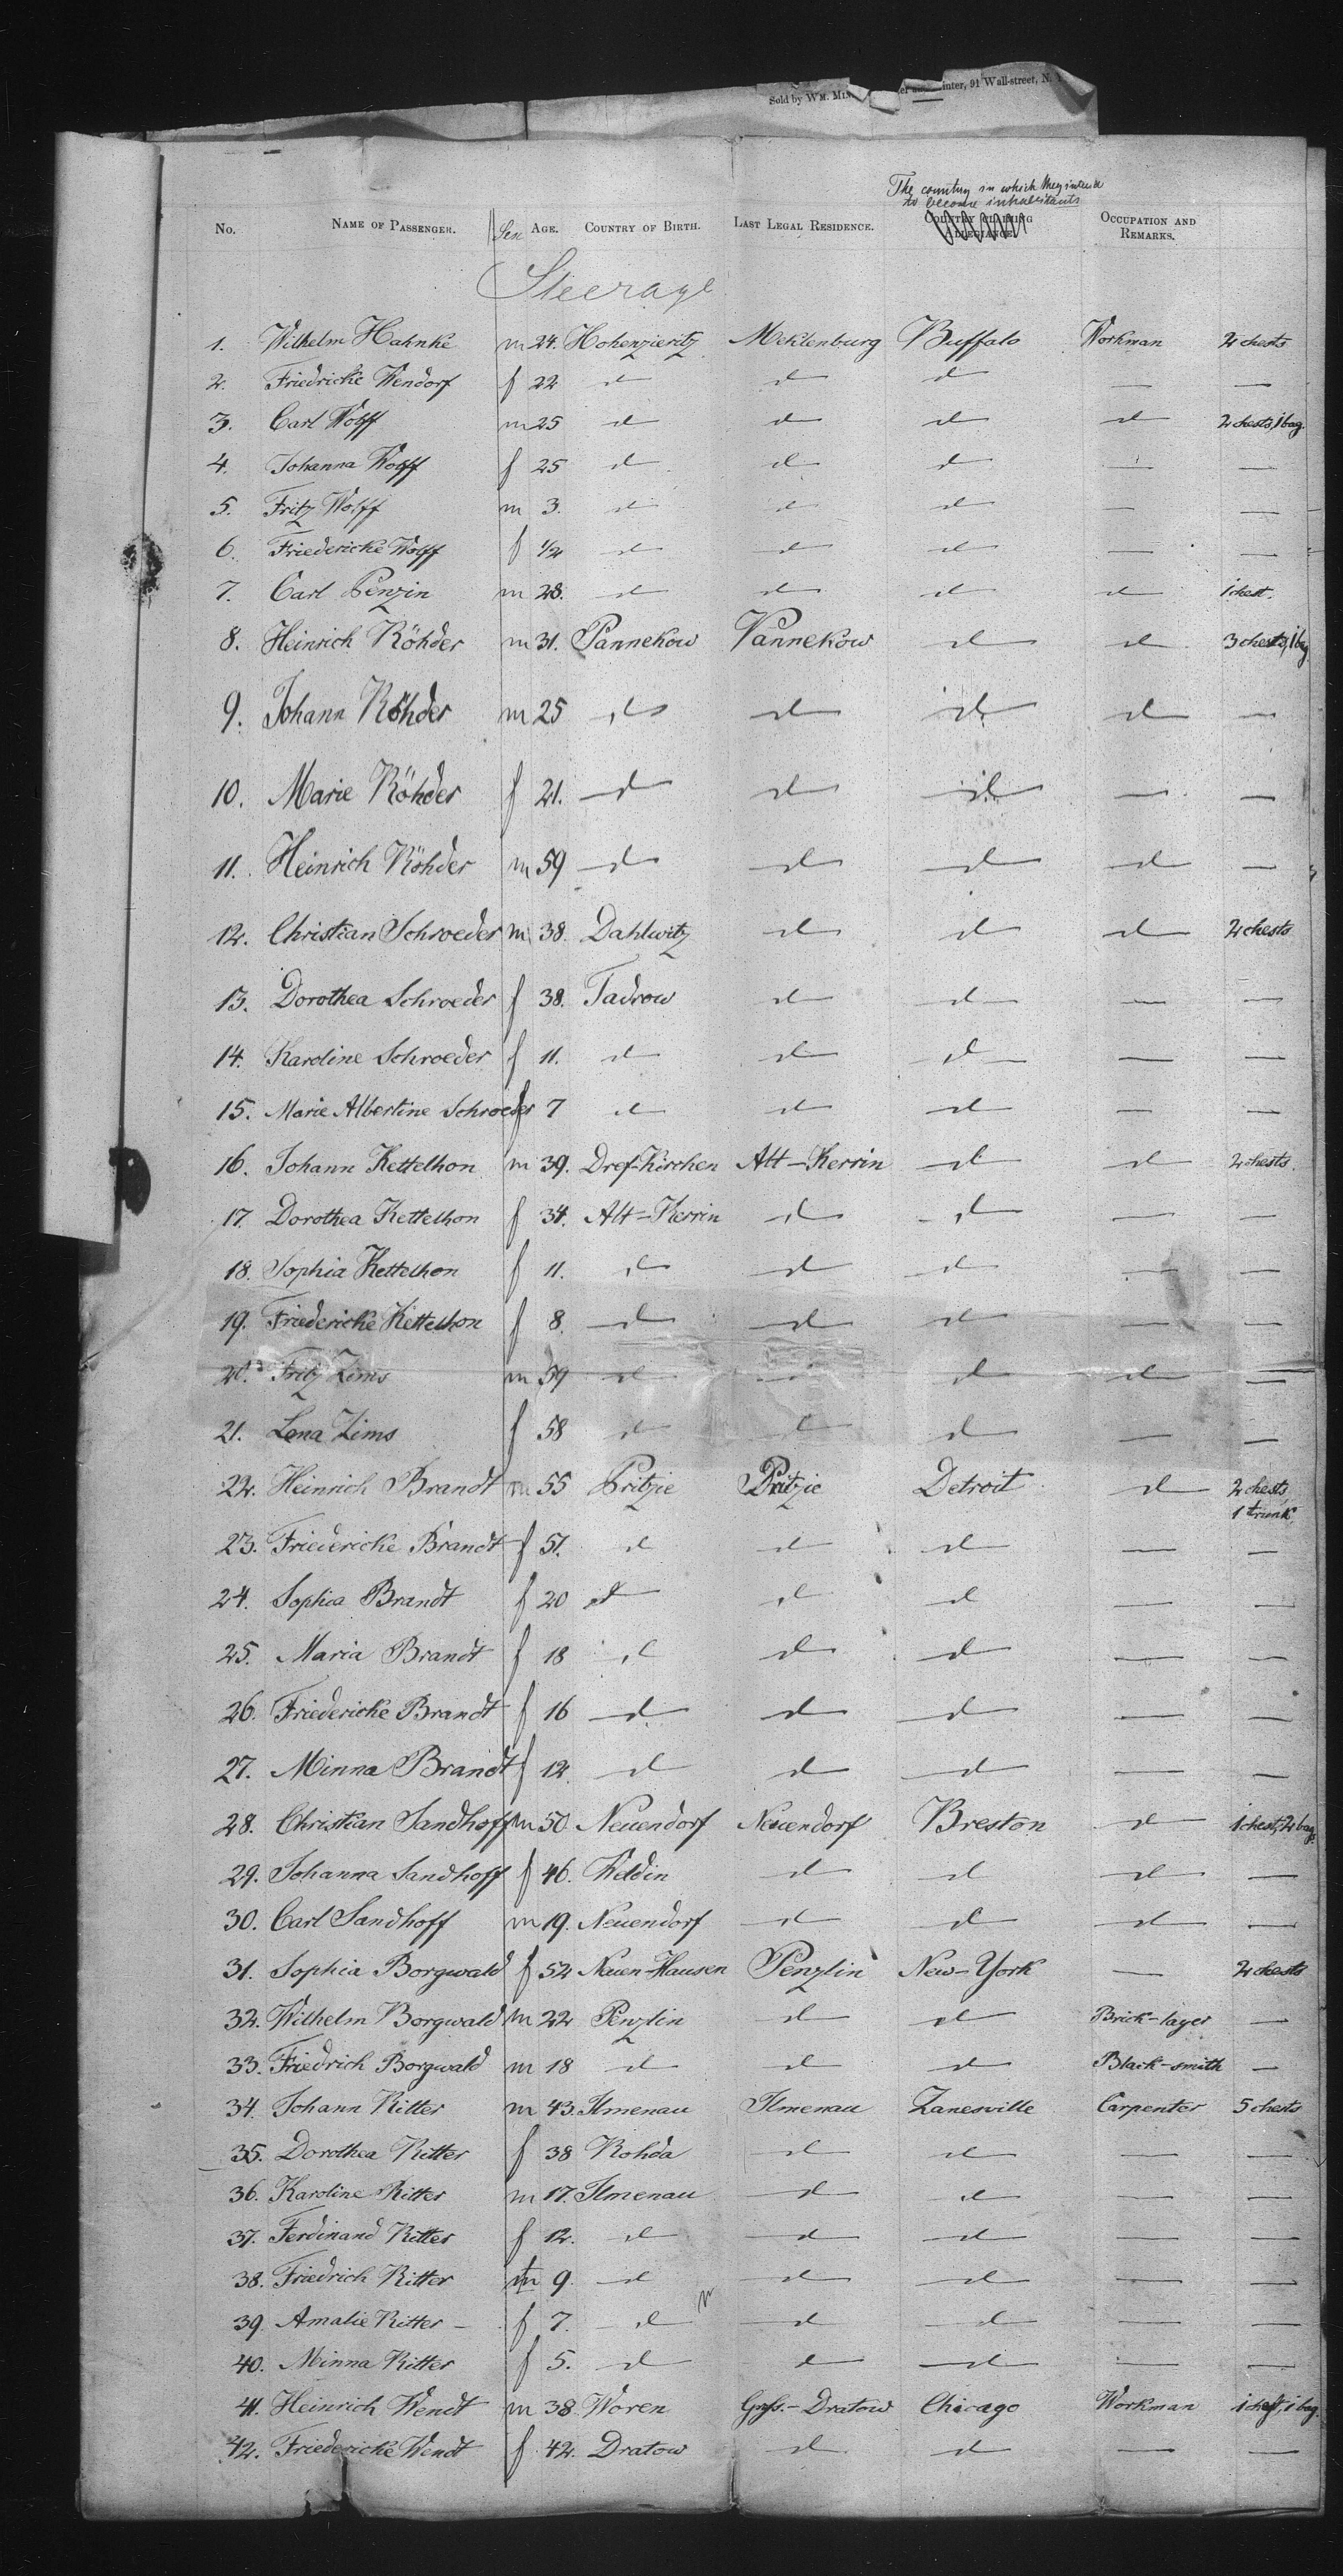 Sold by Wm. inter, 91 Wall-street, N.
The country in which they intend
to become inhabitants
No. Name of Passenger. Sex Age. Country of Birth. Last Legal Residence. Country claiming Allegiance. Occupation and Remarks.
Steerage
1. Wilhelm Hahnke m 24. Hohenzieritz Meklenburg Buffalo Workman 2 chests
2. Friedricke Wendorf f 22 d d d — —
3. Carl Wolff m 25 d d d d 2 chests, 1 bag.
4. Johanna Wolff f 25 d d d — —
5. Fritz Wolff m 3. d d d — —
6. Friedericke Wolff f 1/2 d d d — —
7. Carl Penzin m 28. d d d d 1 chest.
8. Heinrich Röhder m 31. Pannekow Pannekow d d 3 chests, 1 bag.
9. Johann Röhder m 25 d d d d —
10. Marie Röhder f 21. d d d — —
11. Heinrich Röhder m 59 d d d d —
12. Christian Schroeder m 38. Dahlwitz d d d 2 chests
13. Dorothea Schroeder f 38. Tadrow d d — —
14. Karoline Schroeder f 11. d d d — —
15. Marie Albertine Schroeder f 7 d d d — —
16. Johann Kettelhon m 39. Dref-Kirchen Alt-Kerrin d d 2 chests.
17. Dorothea Kettelhon f 34. Alt-Kerrin d d — —
18. Sophia Kettelhon f 11. d d d — —
19. Friedericke Kettelhon f 8. d d d — —
20. Fritz Zims m 59 d d d d —
21. Lena Zims f 58 d d d — —
22. Heinrich Brandt m 55 Pritzie Pritzie Detroit d 2 chests,
1 trunk.
23. Friedericke Brandt f 51. d d d — —
24. Sophia Brandt f 20 d d d — —
25. Maria Brandt f 18 d d d — —
26. Friedericke Brandt f 16 d d d — —
27. Minna Brandt f 12. d d d — —
28. Christian Sandhoff m 50. Neuendorf Neuendorf Breston d 1 chest, 2 bags.
29. Johanna Sandhoff f 46. Keldin d d d —
30. Carl Sandhoff m 19. Neuendorf d d d —
31. Sophia Borgwald f 52 Neuen-Hausen Penzlin New-York — 2 chests
32. Wilhelm Borgwald m 22 Penzlin d d Brick-layer —
33. Friedrich Borgwald m 18 d d d Black-smith —
34. Johann Ritter m 43. Ilmenau Ilmenau Zanesville Carpenter 5 chests
35. Dorothea Ritter f 38 Rohda d d — —
36. Karoline Ritter m 17. Ilmenau d d — —
37. Ferdinand Ritter f 12. d d d — —
38. Friedrich Ritter m 9. d d d — —
39. Amalie Ritter f 7. d d d — —
40. Minna Ritter f 5. d d d — —
41. Heinrich Wendt m 38 Woren Grofs.-Dratow Chicago Workman 1 chest, 1 bag.
42. Friedericke Wendt f 42. Dratow d d — —